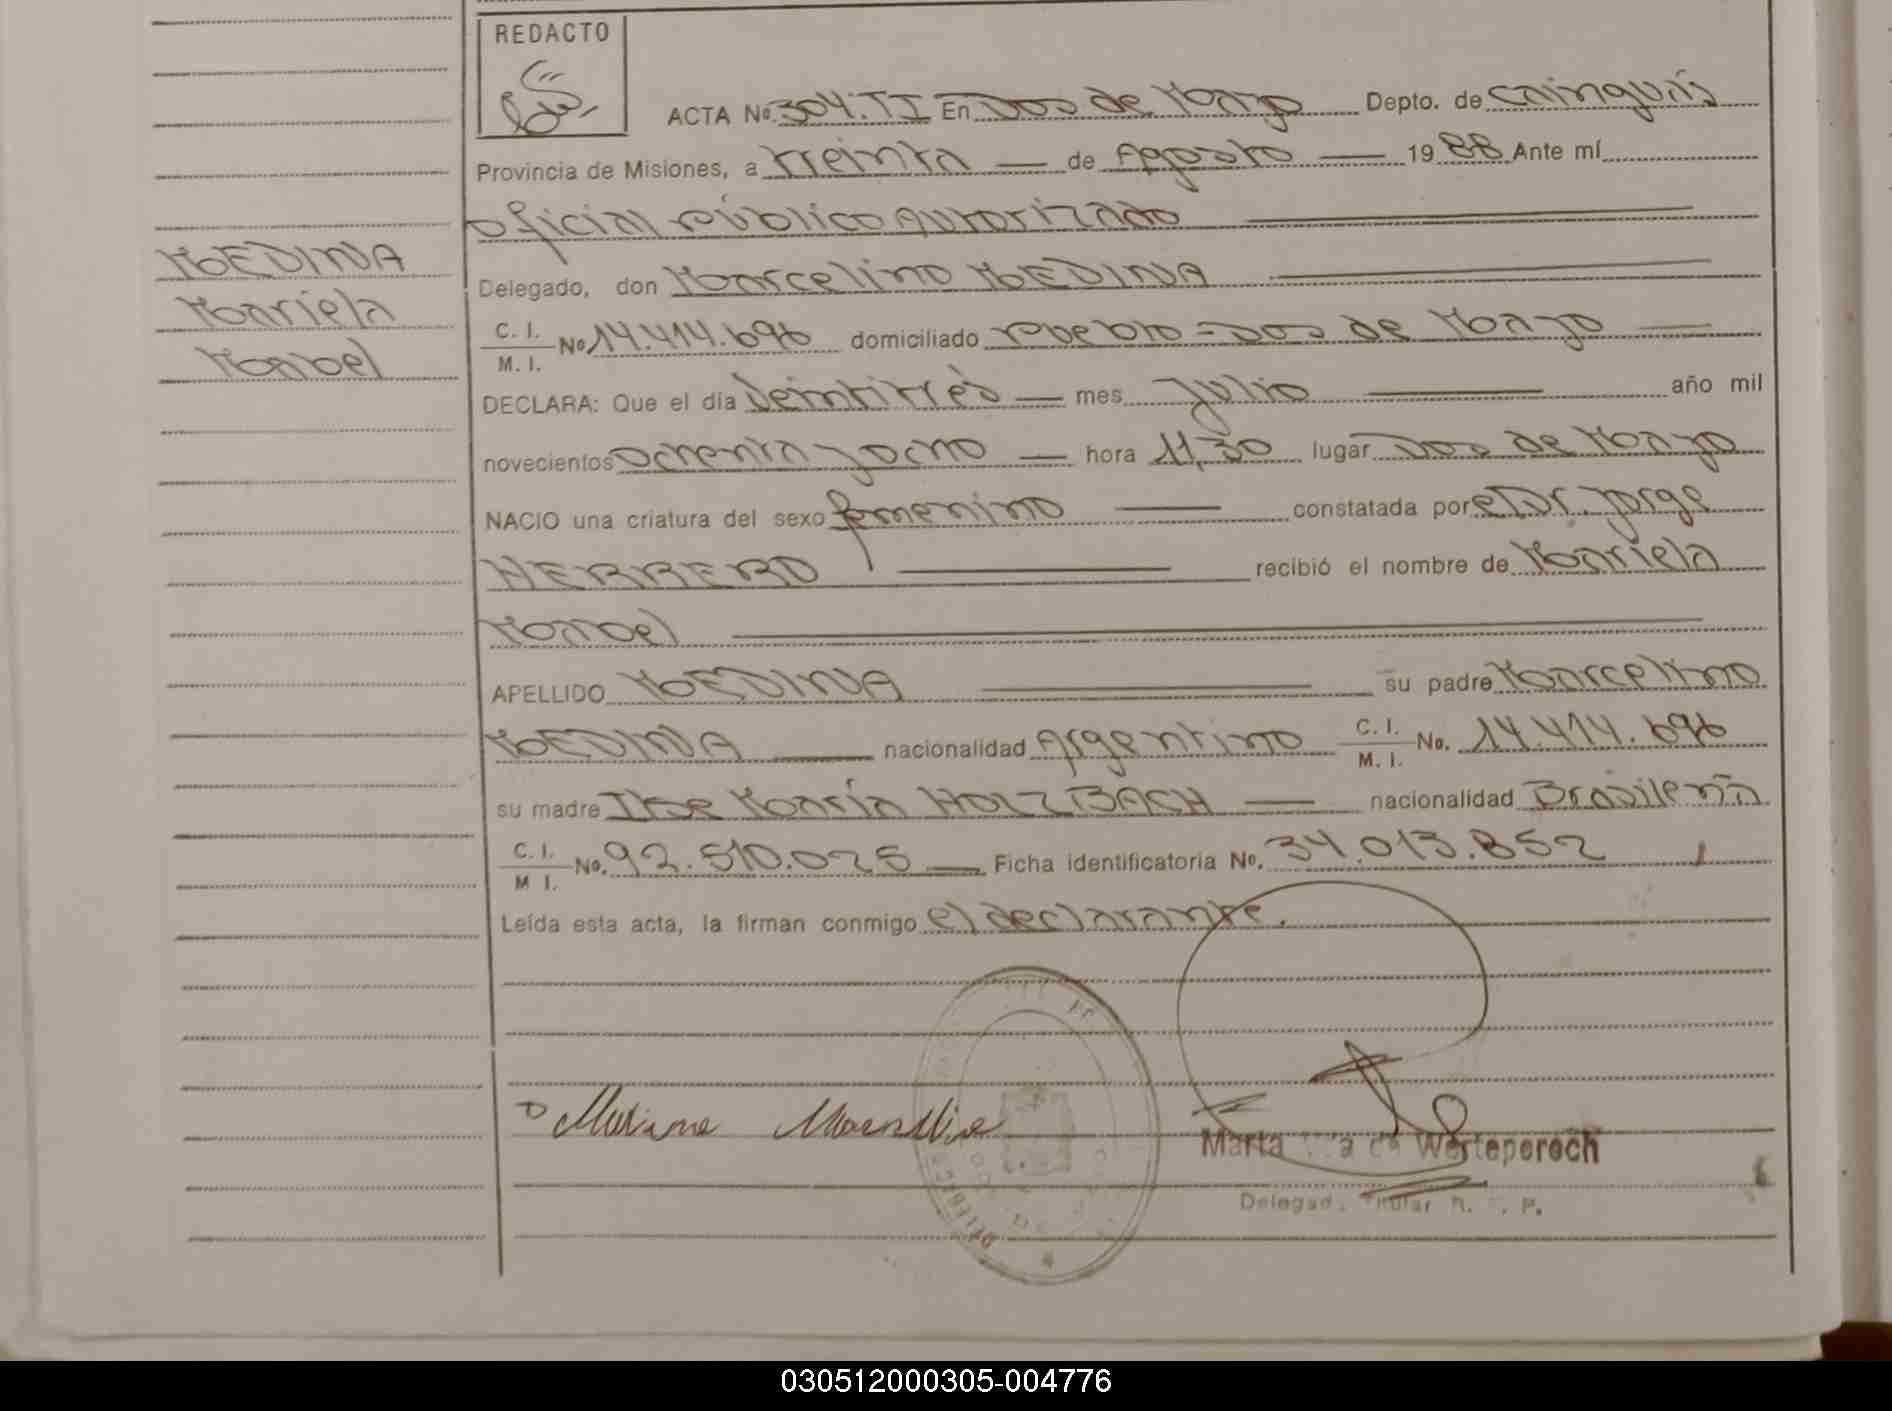 REDACTO
ACTA No. 304.TI En Dos de Mayo Depto. de Cainguás
Provincia de Misiones, a treinta — de Agosto — 1988 Ante mí
oficial público autorizado
MEDINA
Delegado, don Marcelino MEDINA
Mariela
C. I.
M. I. No 14.414.696 domiciliado pueblo = Dos de Mayo
Mabel
DECLARA: Que el día veintitrés — mes julio — año mil
novecientos ochenta y ocho — hora 11,30 lugar Dos de Mayo
NACIO una criatura del sexo femenino — constatada por el Dr. Jorge
HERRERO — recibió el nombre de Mariela
Mabel
APELLIDO MEDINA — su padre Marcelino
MEDINA — nacionalidad Argentino C. I.
M. I. No. 14.414.696
su madre Ilse María HOLZBACH — nacionalidad Brasileña
C. I.
M I. No. 92.510.025 — Ficha identificatoria No. 34.013.852
Leída esta acta, la firman conmigo el declarante.
Marta de Werteperoch
Delegad. Titular R. . P.
030512000305-004776